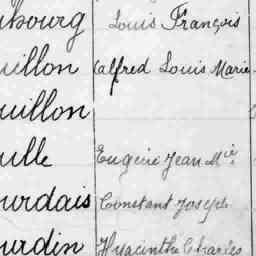 ubourg Louis François
uillon Calfred Louis Marie
uillon
ulle Eugène Jean Mie
urdais Constant Joseph
urdin Hyacinthe Charles